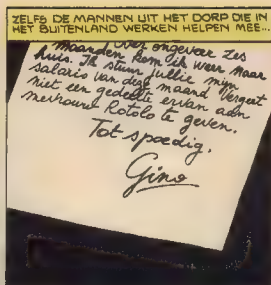 ZELFS DE MANNEN UIT HET DORP DIE IN
HET BUITENLAND WERKEN HELPEN MEE...
Over ongeveer zes
maanden kom ik weer naar
huis. Ik stuur jullie mijn
salaris van deze maand. Vergeet
niet een gedeelte ervan aan
mevrouw Rotolo te geven.
Tot spoedig,
Gino